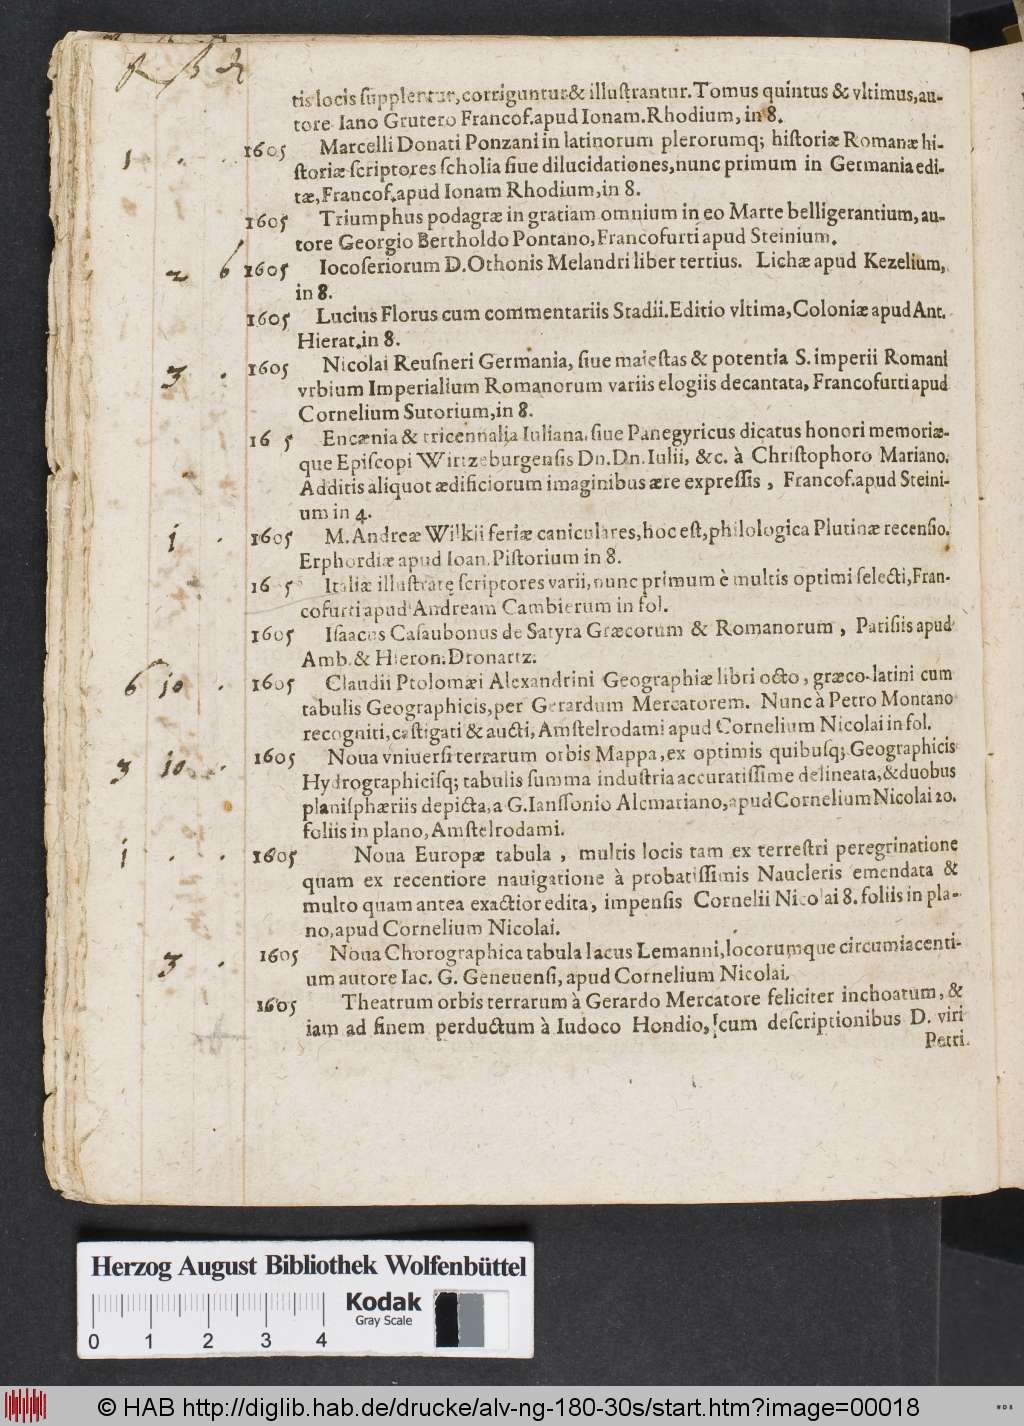 tis locis supplentur, corriguntur & illustrantur. Tomus quintus & vltimus, au-
tore Iano Grutero Francof. apud Ionam. Rhodium, in 8.
1 . . 1605 Marcelli Donati Ponzani in latinorum plerorumq; historiæ Romanæ hi-
storiæ scriptores scholia siue dilucidationes, nunc primum in Germania edi-
tæ, Francof. apud Ionam Rhodium, in 8.
1605 Triumphus podagræ in gratiam omnium in eo Marte belligerantium, au-
tore Georgio Bertholdo Pontano, Francofurti apud Steinium.
2 6 1605 Iocoseriorum D. Othonis Melandri liber tertius. Lichæ apud Kezelium,
in 8.
1605 Lucius Florus cum commentariis Stadii. Editio vltima, Coloniæ apud Ant.
Hierat. in 8.
3 . 1605 Nicolai Reusneri Germania, siue maiestas & potentia S. imperii Romani
vrbium Imperialium Romanorum variis elogiis decantata, Francofurti apud
Cornelium Sutorium, in 8.
16 5 Encænia & tricennalia Iuliana. siue Panegyricus dicatus honori memoriæ-
que Episcopi Wirtzeburgensis Dn. Dn. Iulii, &c. à Christophoro Mariano.
Additis aliquot ædificiorum imaginibus ære expressis, Francof. apud Steini-
um in 4.
1 . 1605 M. Andreæ Wilkii feriæ caniculares, hoc est, philologica Plutinæ recensio.
Erphordiæ apud Ioan. Pistorium in 8.
16 5 Italiæ illustratę scriptores varii, nunc primum è multis optimi selecti, Fran-
cofurti apud Andream Cambierum in fol.
1605 Isaacus Casaubonus de Satyra Græcorum & Romanorum, Parisiis apud
Amb. & Hieron. Dronartz.
6 10 . 1605 Claudii Ptolomæi Alexandrini Geographiæ libri octo, græco-latini cum
tabulis Geographicis, per Gerardum Mercatorem. Nunc à Petro Montano
recogniti, castigati & aucti, Amstelrodami apud Cornelium Nicolai in fol.
3 10 . 1605 Noua vniuersi terrarum orbis Mappa, ex optimis quibusq; Geographicis
Hydrographicisq; tabulis summa industria accuratissime delineata, & duobus
planisphæriis depicta, a G. Ianssonio Alcmariano, apud Cornelium Nicolai 20.
foliis in plano, Amstelrodami.
1 . . 1605 Noua Europæ tabula, multis locis tam ex terrestri peregrinatione
quam ex recentiore nauigatione à probatissimis Naucleris emendata &
multo quam antea exactior edita, impensis Cornelii Nicolai 8. foliis in pla-
no, apud Cornelium Nicolai.
3 . 1605 Noua Chorographica tabula lacus Lemanni, locorumque circumiacenti-
um autore Iac. G. Geneuensi, apud Cornelium Nicolai.
1605 Theatrum orbis terrarum à Gerardo Mercatore feliciter inchoatum, &
iam ad finem perductum à Iudoco Hondio, cum descriptionibus D. viri
Petri.
Herzog August Bibliothek Wolfenbüttel
Kodak
Gray Scale
0 1 2 3 4
© HAB http://diglib.hab.de/drucke/alv-ng-180-30s/start.htm?image=00018